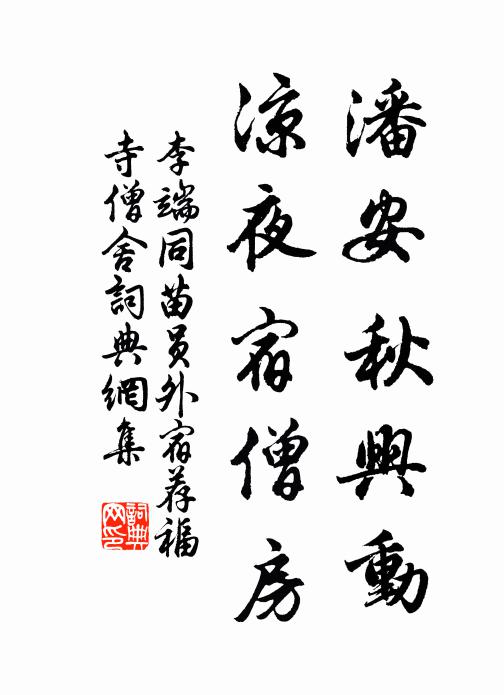 潘安秋興動
涼夜宿僧房
李端同苗员外宿荐福
寺僧舍詞典網集
詞典
网印